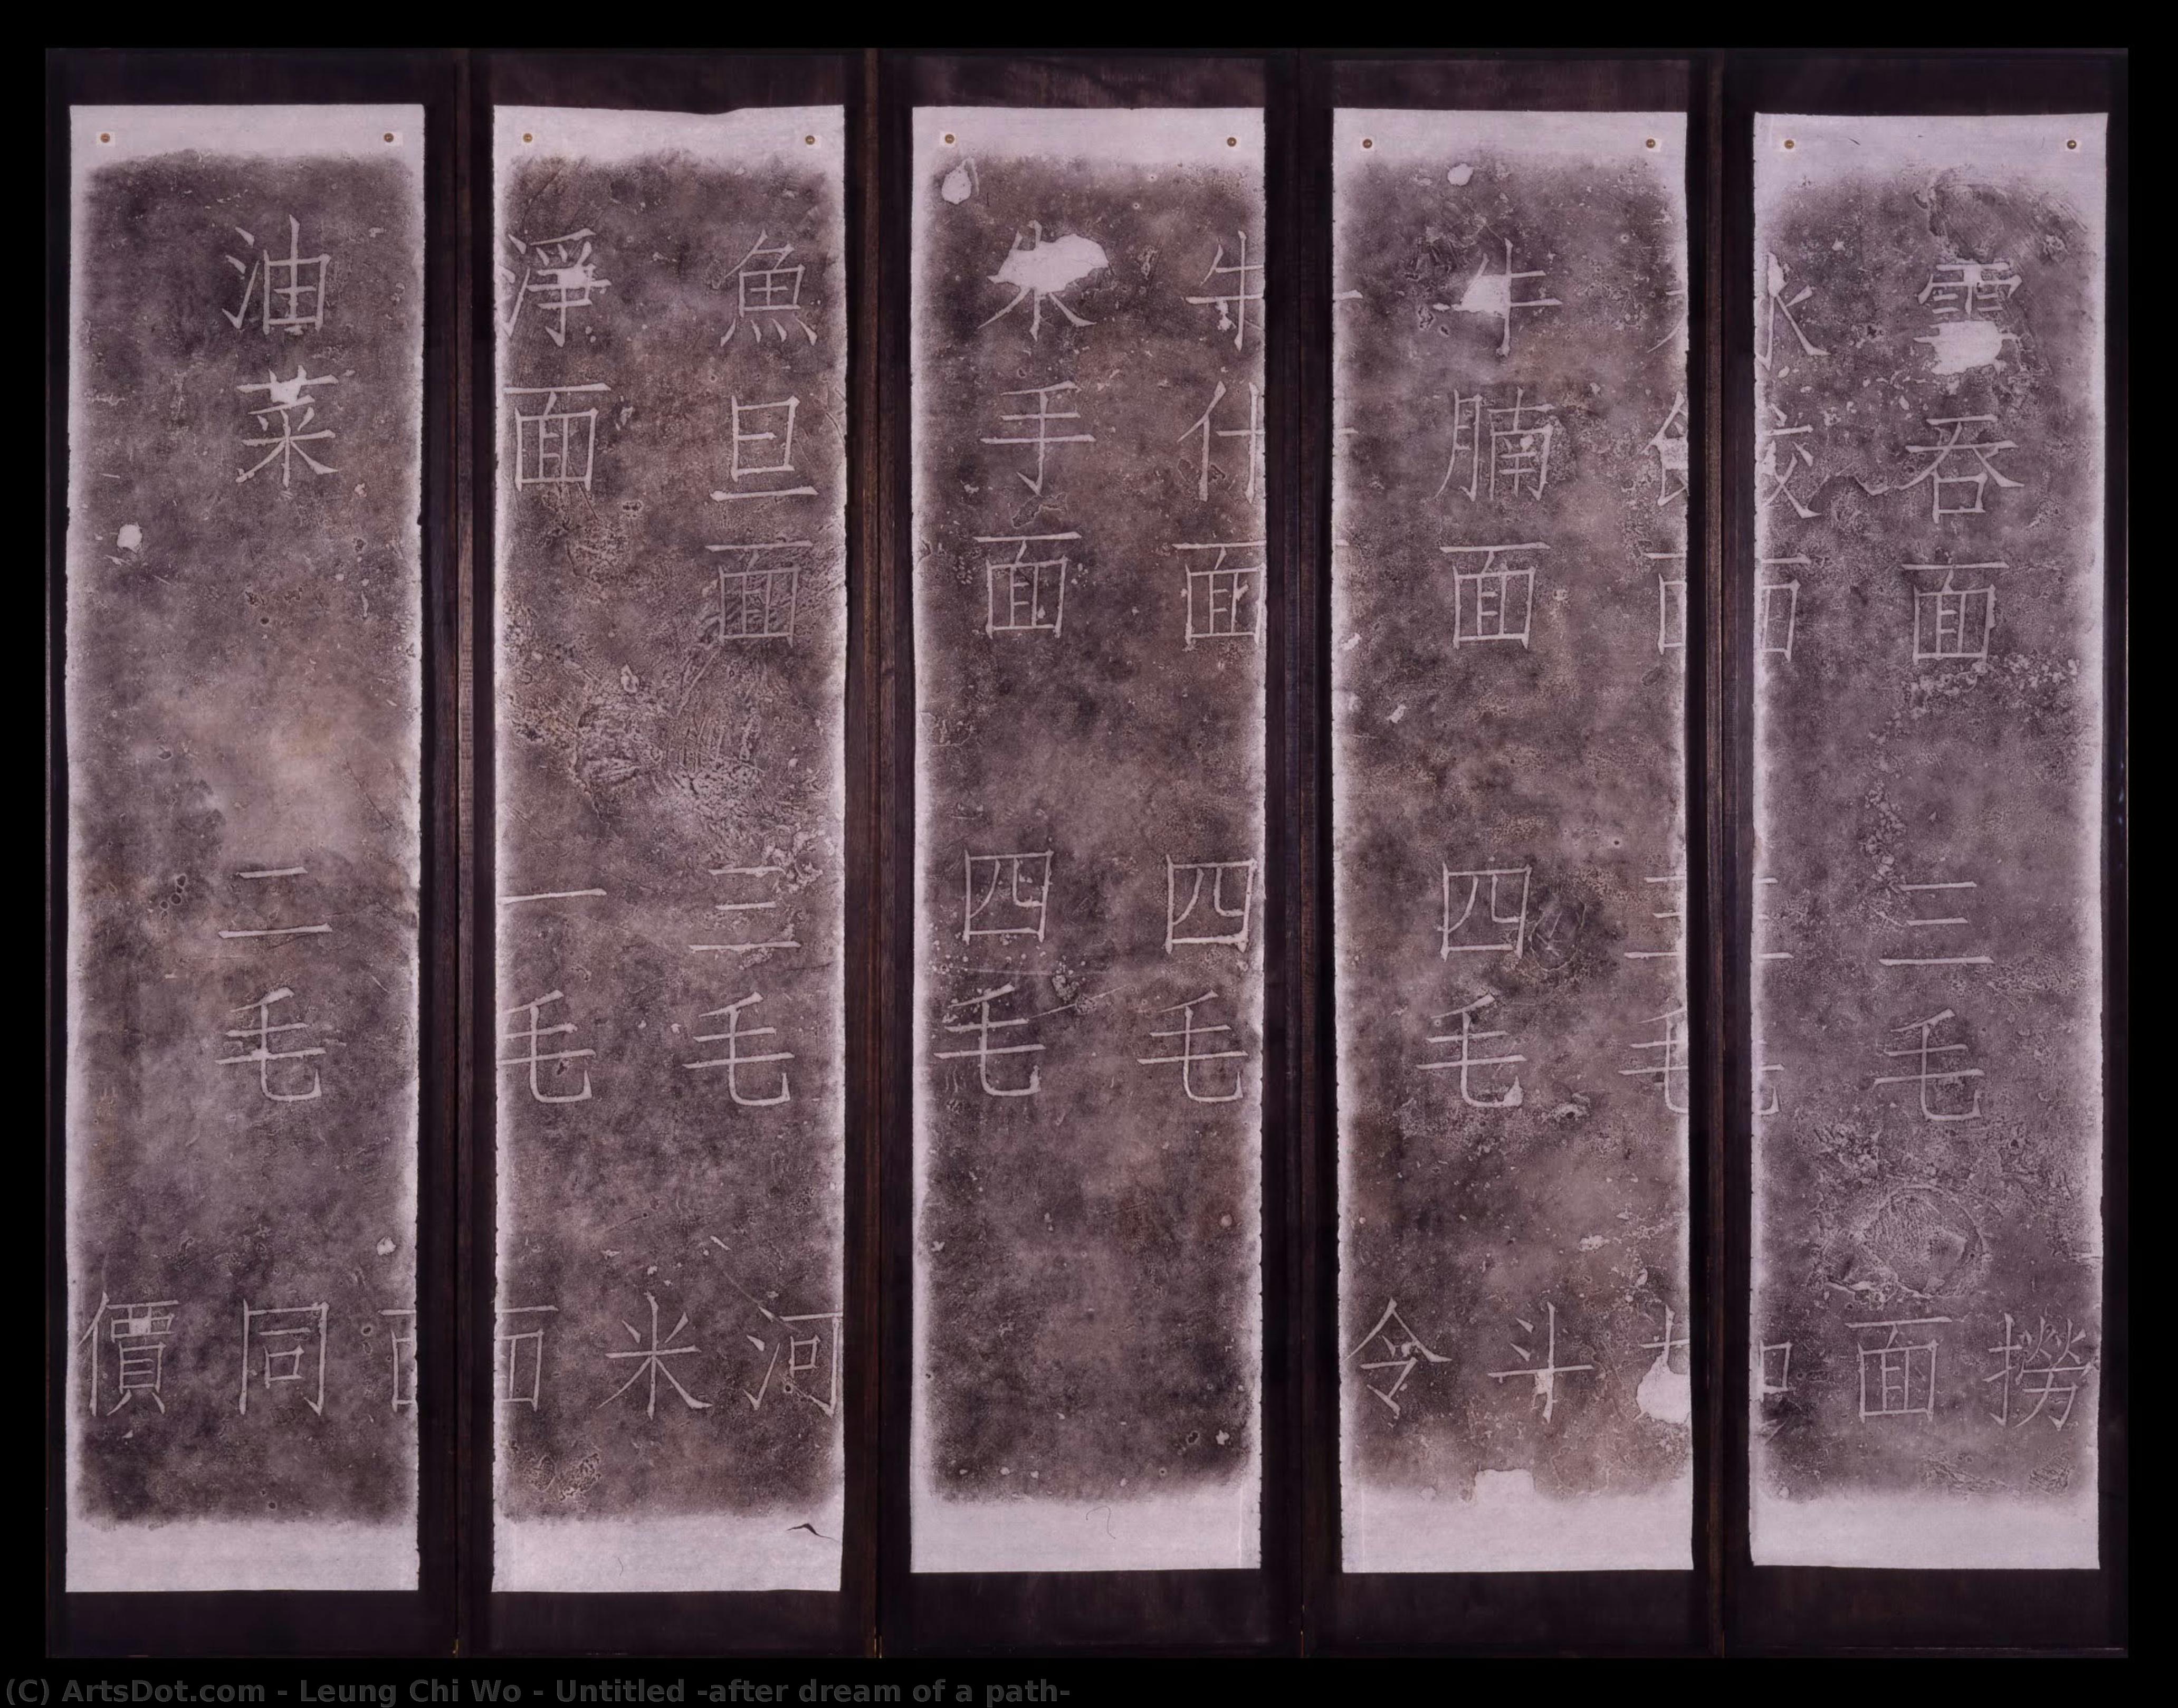 雲吞面 三毛
水餃面 三毛
牛腩面 四毛
牛什面 四毛
朱手面 四毛
魚旦面 三毛
淨面 一毛
油菜 二毛
撈面加斗令 河米面同價
(C) ArtsDot.com - Leung Chi Wo - Untitled -after dream of a path-